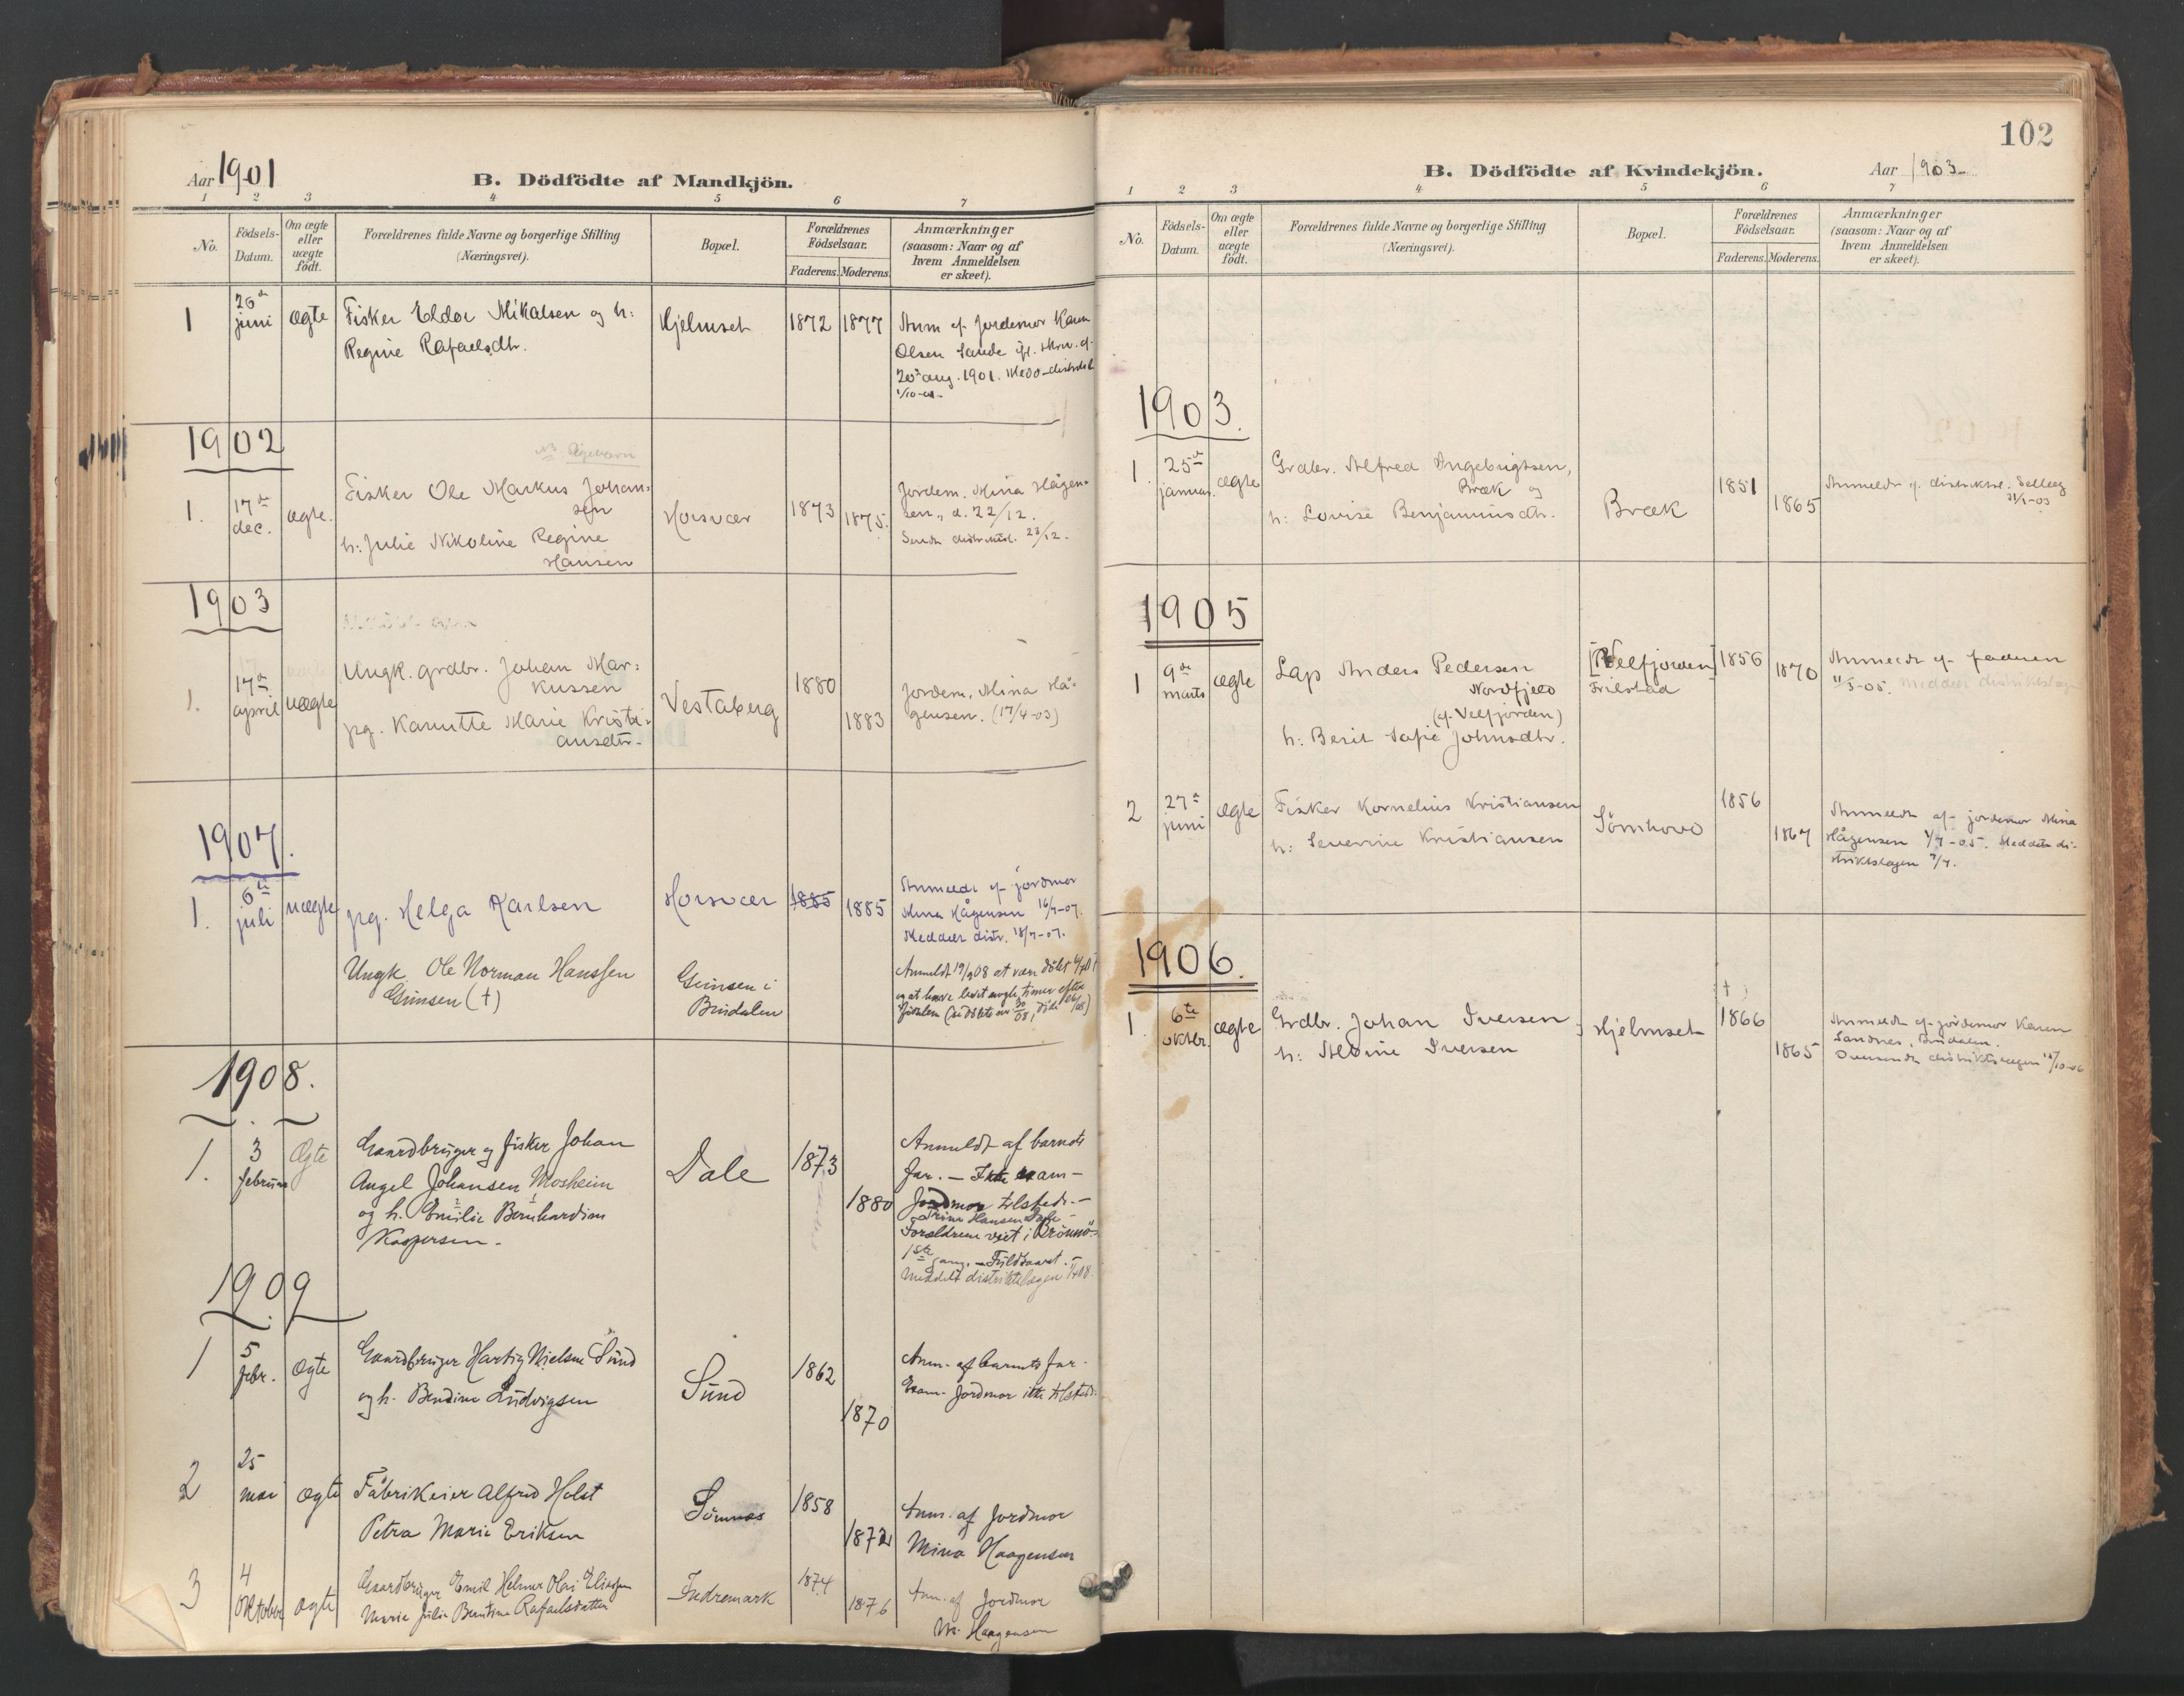 Aar 1901
B. Dödfödte af Mandkjön.
1 2 3 4 5 6 7
No.
Födsels-
Datum.
Om ægte
eller
uægte
födt.
Forældrenes fulde Navne og borgerlige Stilling
(Næringsvei).
Bopæl.
Forældrenes
Födselsaar.
Faderens. Moderens.
Anmærkninger
(saasom: Naar og af
hvem Anmeldelsen
er skeet).
1 26de juni ægte Fisker Eldor Mikalsen og h: Hjelmset 1872 1877 Anm. af Jordemor Karen
Regine Rafaelsdtr. Olsen Sande
20de aug. 1901.
1902
1. 17de dec. ægte. Fisker Ole Markus Johan-
sen
h: Julie Nikoline Regine
Hansen
Horsvær 1873 1875.
Jordem. Mina Hågen-
sen, d. 22/12.
Sendt distriktsl. 23/12.
1903
1. 17de april uægte Ungk. grdbr. Johan Mar-
kussen
pg. Kanutte Marie Kristi-
ansdtr.
Vestaberg 1880 1883
Jordem. Mina Hå-
gensen. (17/4-03)
1907.
1. 6te juli uægte pg. Helga Karlsen Horsvær 1885 1885
Anmeldt af jordmor
Mina Hågensen 16/7-07.
Meddelt distr. 18/7-07.
Ungk. Ole Norman Hanssen
Grinsen (†)
Grinsen i
Bindalen
1908.
1. 3 februar Ægte Gaardbruger og fisker Johan
Angel Johansen Mosheim
og h. Emilie Bernhardine
Kaspersen.
Dale 1873 1880
Anmeldt af barnets
far. - Ikke exam-
Jordmor tilstede. -
Trine Hansen Dale -
Forældrene viet i Brönnö -
1ste gang. - Fuldbaaret. -
Meddelt distriktslægen
1909
1 5 febr. ægte Gaardbruger Hartvig Nielsen Sund
og h. Bendine Ludvigsen
Sund 1862 1870
Anm. af barnets far.
Exam. Jordmor ikke tilstede.
2 25 mai ægte Fabrikeier Alfred Holst
Petra Marie Eriksen
Sömnes 1858 1872
Anm. af Jordmor
Mina Haagensen
3 4 Oktober ægte Gaardbruger Emil Helmer Olai Eliassen
Marie Julie Berntine Rafaelsdatter
Indremark 1874 1876
Anm. af Jordmor
M. Haagensen
102
B. Dödfödte af Kvindekjön.
Aar 1903
1 2 3 4 5 6 7
No.
Födsels-
Datum.
Om ægte
eller
uægte
födt.
Forældrenes fulde Navne og borgerlige Stilling
(Næringsvei).
Bopæl.
Forældrenes
Födselsaar.
Faderens. Moderens.
Anmærkninger
(saasom: Naar og af
hvem Anmeldelsen
er skeet).
1903.
1. 25de januar. ægte Grdbr. Alfred Ingebrigtsen,
Bræk og
h: Lovise Benjaminsdtr.
Bræk 1851 1865
Anmeldt af distriktsl. Solberg
31/1-03
1905
1 9de marts ægte Lap Anders Pedersen
Nordfjeld
(af Velfjorden)
h: Berit Sofie Johnsdtr.
[Velfjorden]
Frilstad
1856 1870
Anmeldt af faderen
11/3-05. Meddelt distriktslægen
2 27de juni ægte Fisker Kornelius Kristiansen
h: Severine Kristiansen
Sömhovd 1856 1867
Anmeldt af jordemor Mina
Hågensen 1/7-05. Meddelt di-
striktslægen 3/7.
1906.
1. 6te oktbr. ægte Grdbr. Johan Iversen
h: Aldine Iversen
Hjelmset (†) 1866 1865
Anmeldt af jordemor Karen
Sandnes, Bindalen.
Oversendt distriktslægen 12/10-06